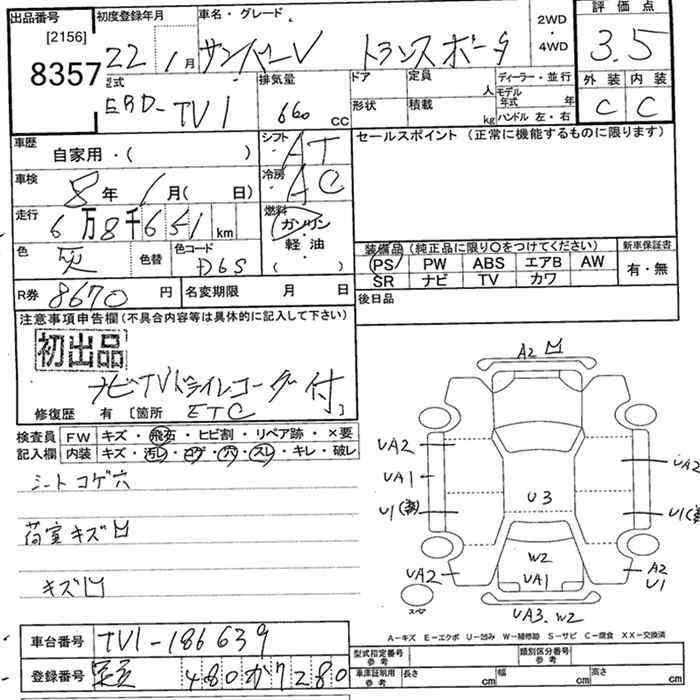 出品番号 [2156] 8357
初度登録年月 22年 1月
車名・グレード サンバーV トランスポータ
2WD・4WD
評価点 3.5
外装 C 内装 C
型式 EBD-TV1
排気量 660 CC
ドア 定員 人
形状 積載 kg
ディーラー・並行
モデル年式 年
ハンドル 左・右
車歴 自家用・( )
シフト AT
セールスポイント (正常に機能するものに限ります)
車検 8年 1月( 日)
冷房 AC
走行 6万8千651 km
燃料 ガソリン 軽油 ( )
色 灰 色替 色コード D6S
装備品 (純正品に限り〇をつけてください) 新車保証書
PS PW ABS エアB AW 有・無
SR ナビ TV カワ
R券 8670円 名変期限 月 日
後日品
注意事項申告欄 (不具合内容等は具体的に記入して下さい)
初出品
ナビTVドライレコーダー付
ETC
修復歴 有 [箇所 ]
検査員記入欄 FW キズ・飛石・ヒビ割・リペア跡・×要
内装 キズ・汚レ・コゲ・穴・スレ・キレ・破レ
シート コゲ穴
荷室キズ凹
キズ凹
A2 凹
UA2
UA2
UA1
U3
U1
U1
W2
UA1
UA2
A2
U1
スペア
UA3. W2
A-キズ E-エクボ U-凹み W-補修跡 S-サビ C-腐食 XX-交換済
車台番号 TV1-186639
型式指定番号 参考 類別区分番号 参考
登録番号 480 か 7280
車庫証明用 参考 長さ cm 幅 cm 高さ cm